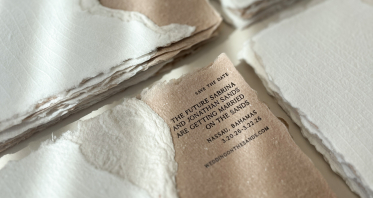 SAVE THE DATE
THE FUTURE SABRINA
AND JONATHAN SANDS
ARE GETTING MARRIED
ON THE SANDS
NASSAU, BAHAMAS
3.20.26-3.22.26
WEDDINGONTHESANDS.COM